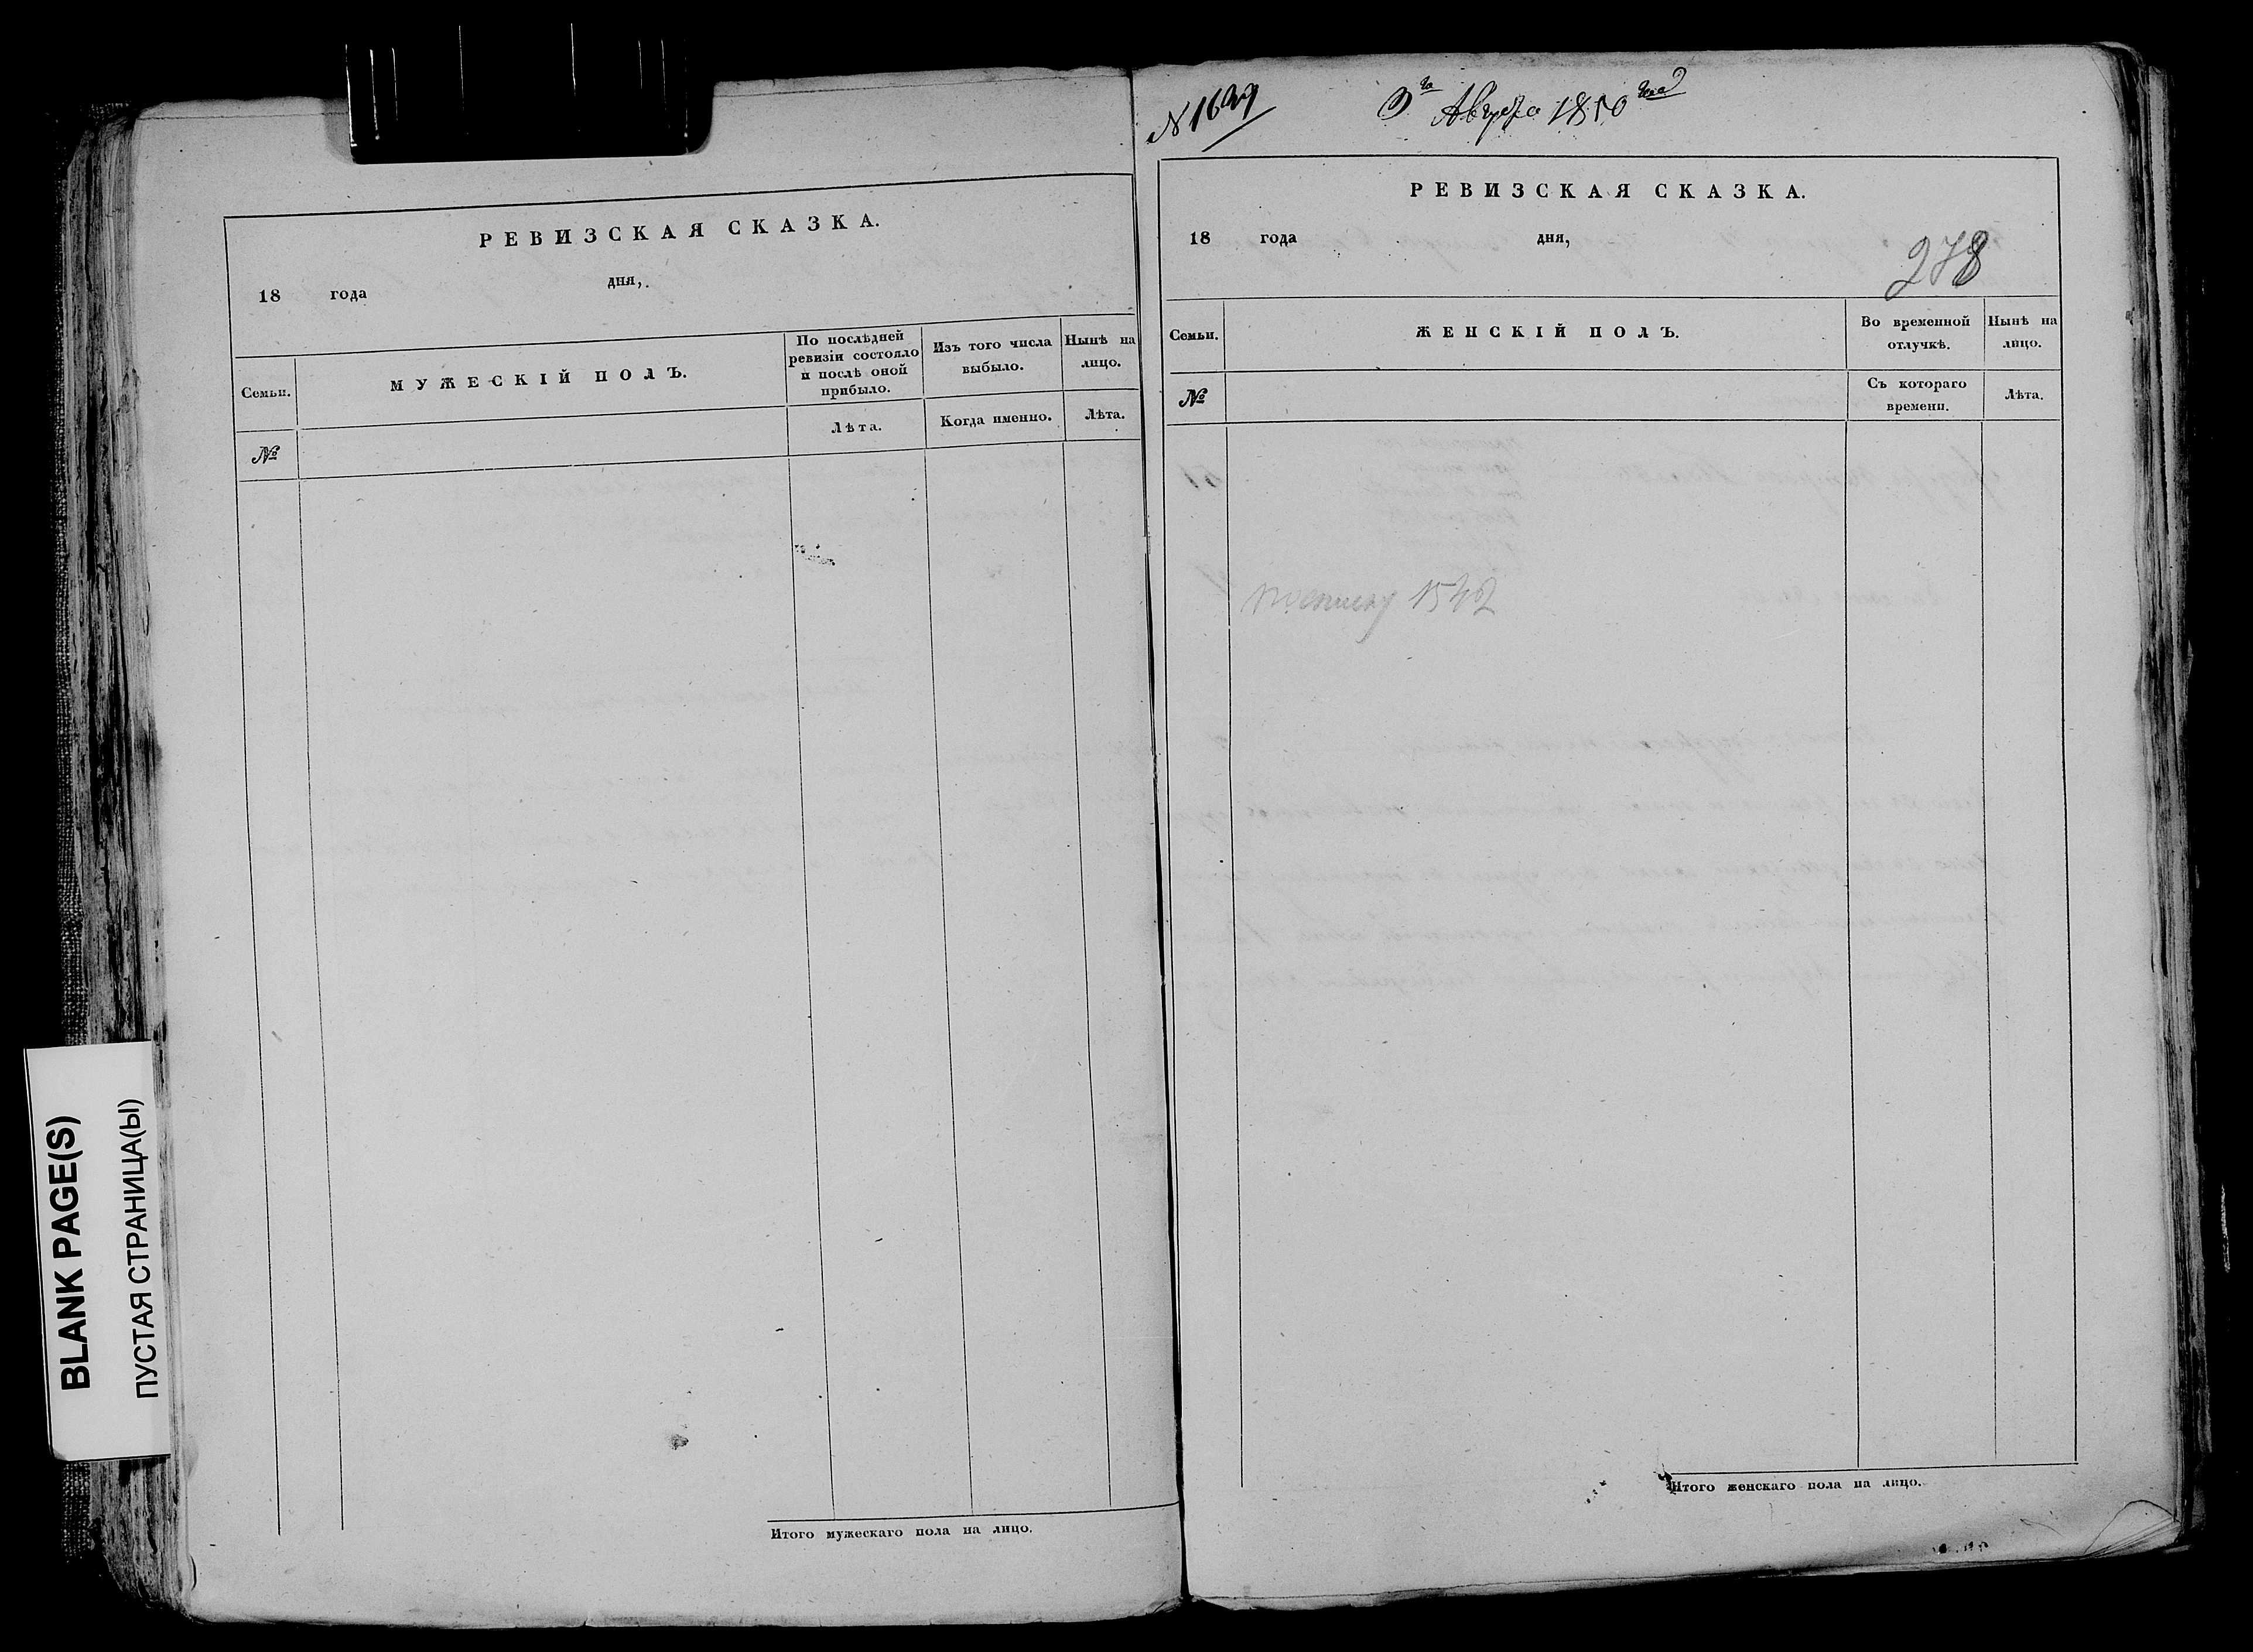 РЕВИЗСКАЯ СКАЗКА.
18 года дня,
Семьи. МУЖЕСКІЙ ПОЛЪ. По послѣдней ревизіи состояло и послѣ оной прибыло. Изъ того числа выбыло. Нынѣ на лицо.
№ Лѣта. Когда именно. Лѣта.
Итого мужескаго пола на лицо.
BLANK PAGE(S)
ПУСТАЯ СТРАНИЦА(Ы)
Августа 1850 года
РЕВИЗСКАЯ СКАЗКА.
18 года дня,
278
Семьи. ЖЕНСКІЙ ПОЛЪ. Во временной отлучкѣ. Нынѣ на лицо.
№ Съ котораго времени. Лѣта.
Итого женскаго пола на лицо.